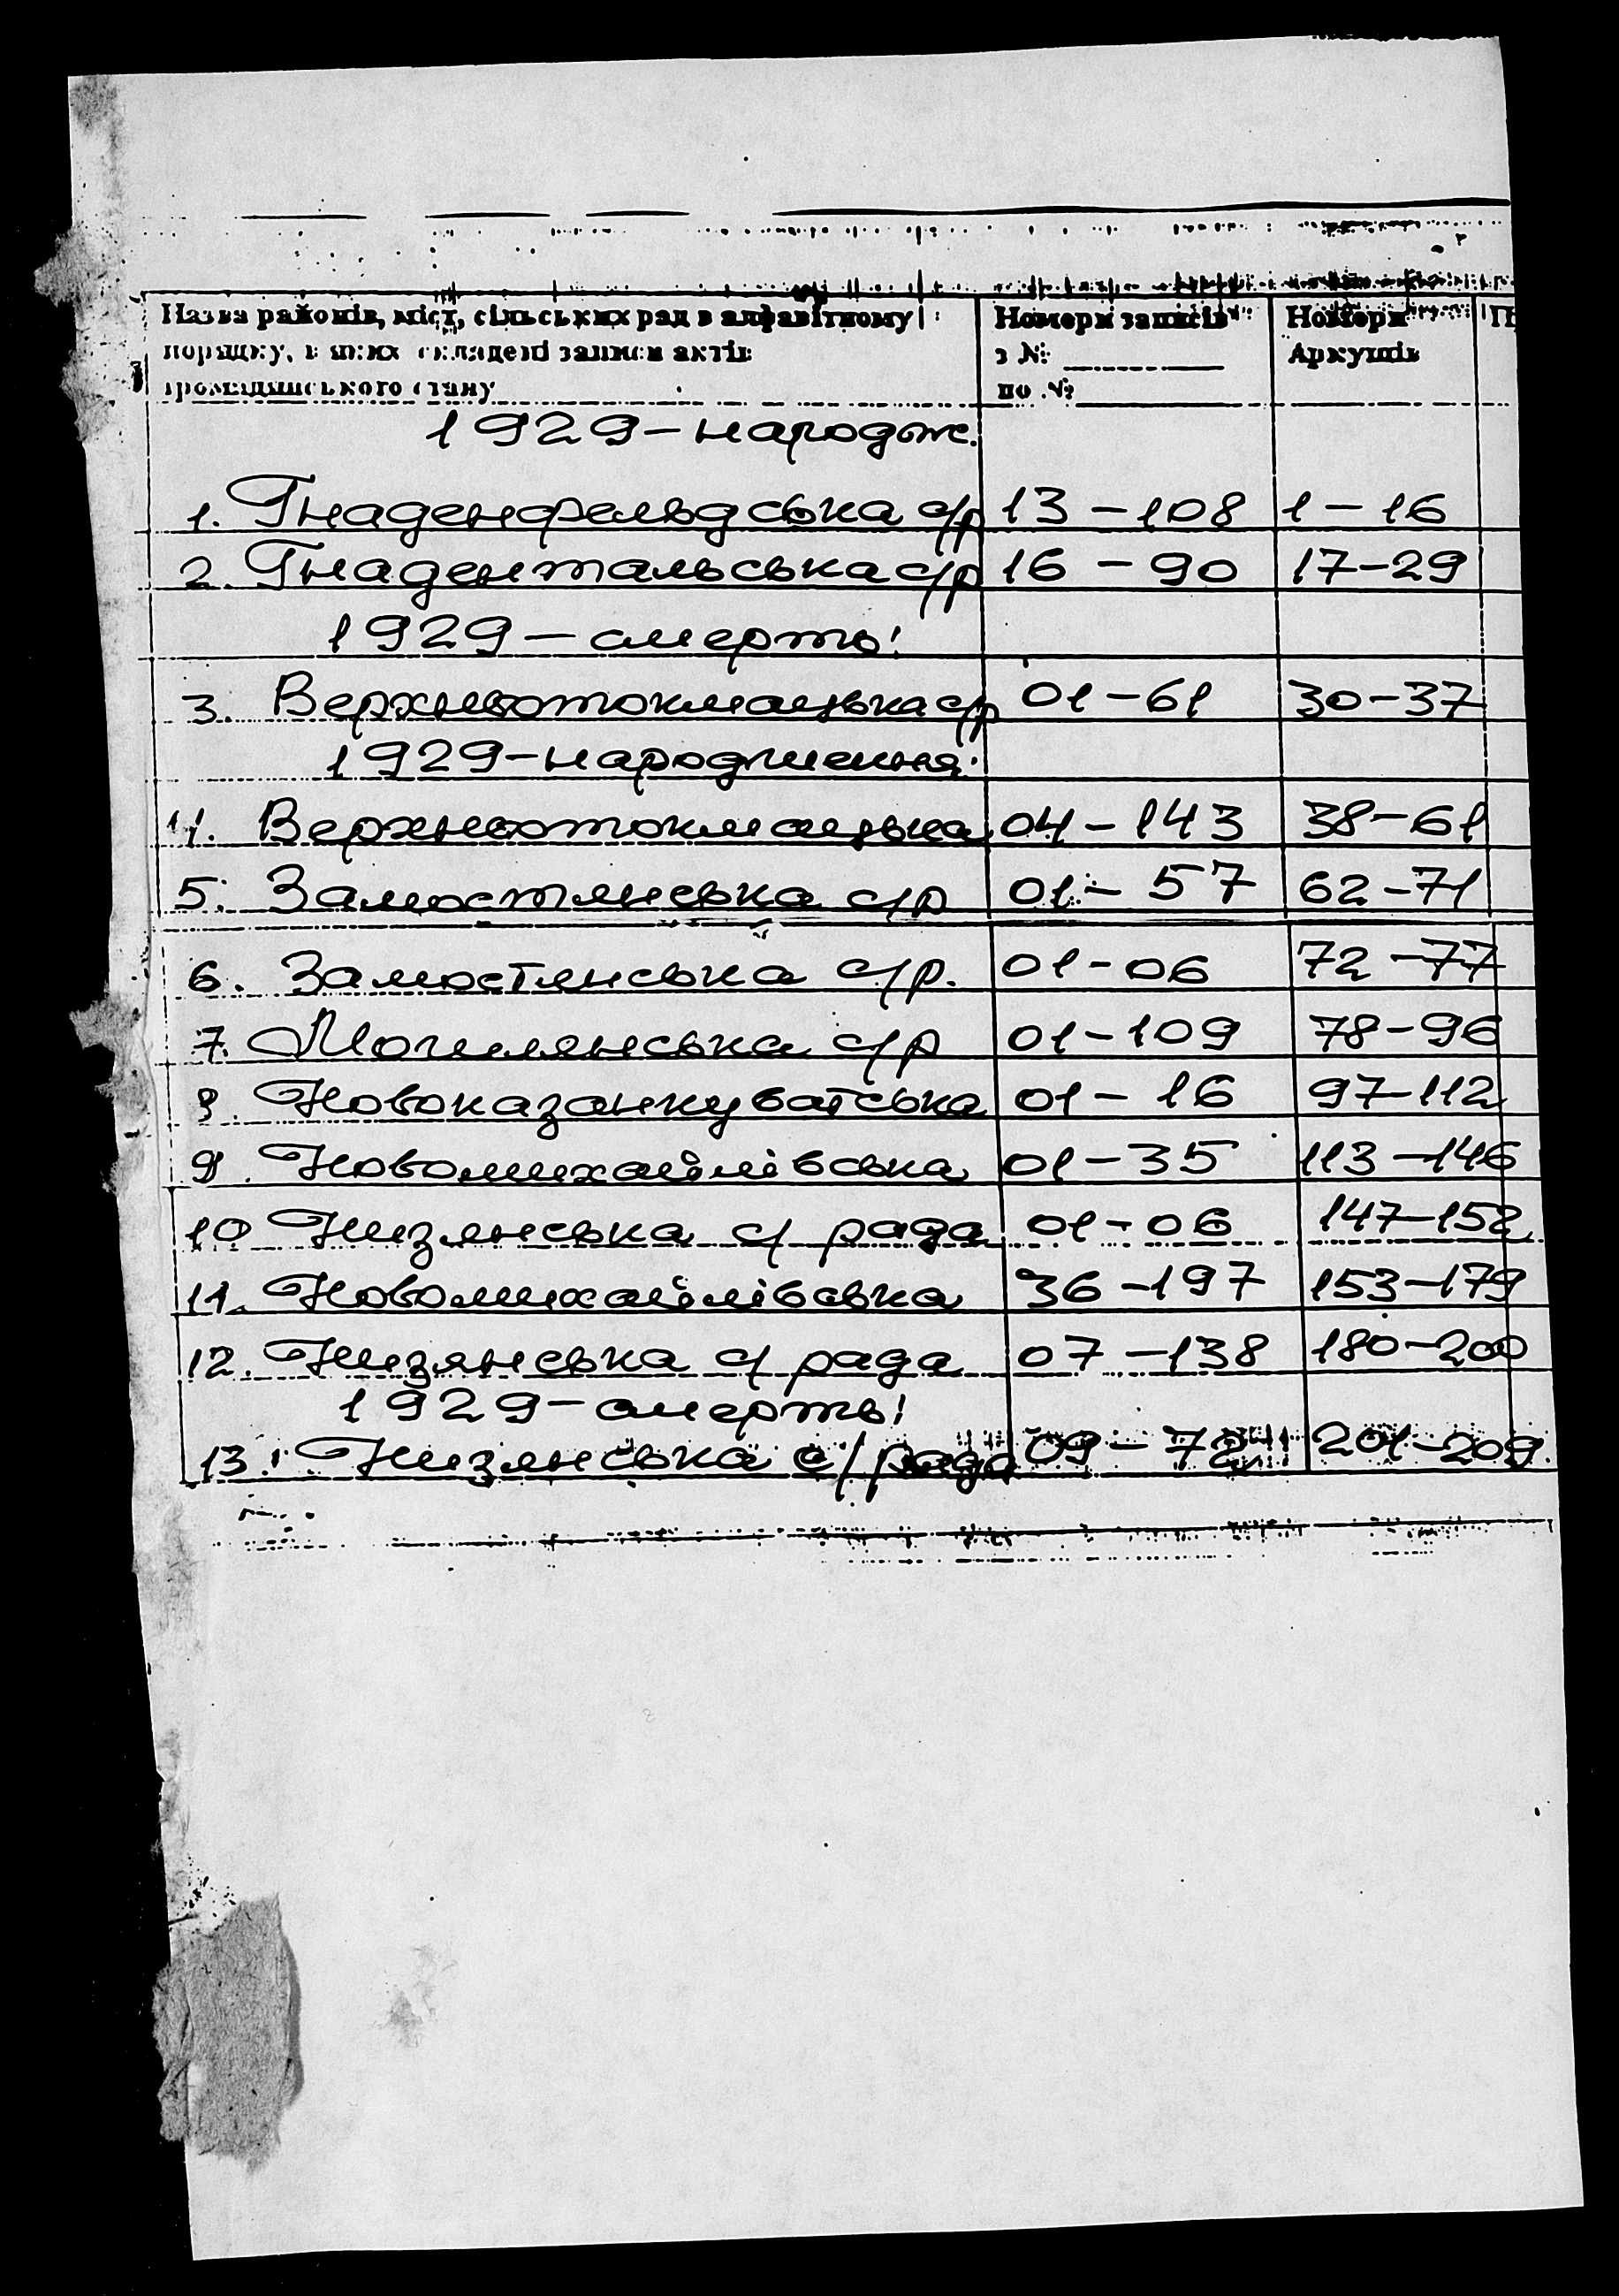 Назва районів, міст, сільських рад в алфавітному Номери записів Номери
порядку, в яких складені записи актів з № Аркушів
громадянського стану по №
1929 – народж.
1. Гнаденфельдська с/р 13 – 108 1 – 16
2. Гнадентальська с/р 16 – 90 17 – 29
1929 – смерть!
3. Верхньотокмацька с/р 01 – 61 30 – 37
1929 – народження:
4. Верхньотокмацька 04 – 143 38 – 61
5. Замостянська с/р 01 – 57 62 – 71
6. Замостянська с/р. 01 – 06 72 – 77
7. Могилянська с/р 01 – 109 78 – 96
8. Новоказанкуватська 01 – 16 97 – 112
9. Новомихайлівська 01 – 35 113 – 146
10 Низянська с/ рада 01 – 06 147 – 152
11. Новомихайлівська 36 – 197 153 – 179
12. Низянська с/ рада 07 – 138 180 – 200
1929 – смерть!
13. Низянська с/рада 09 – 72 201 – 209.